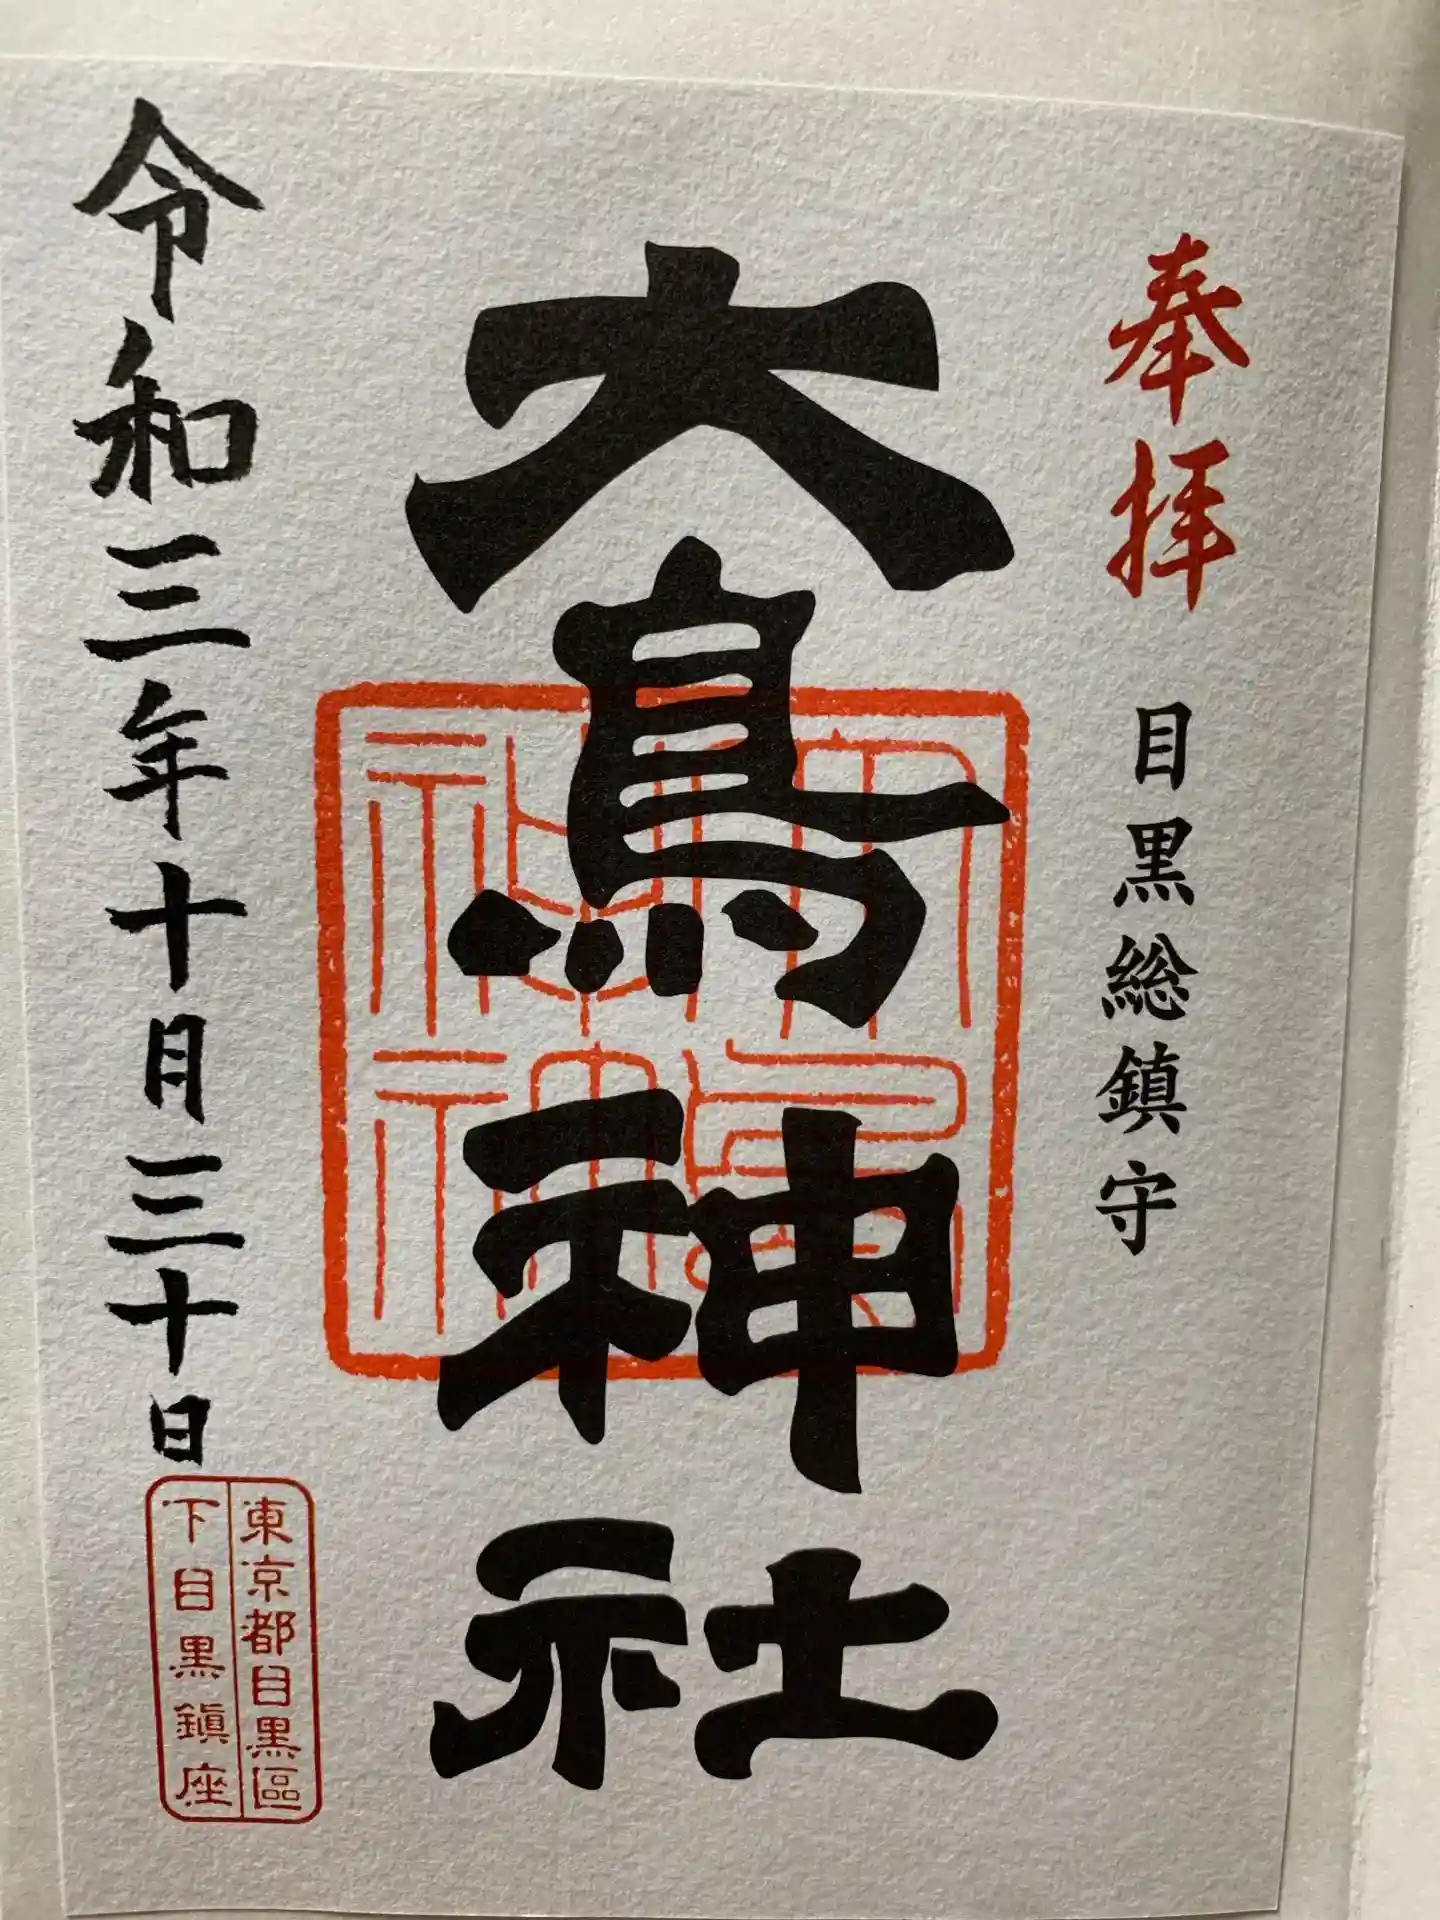 奉拝
目黒総鎮守
大鳥神社
令和三年十月三十日
東京都目黒區
下目黒鎭座